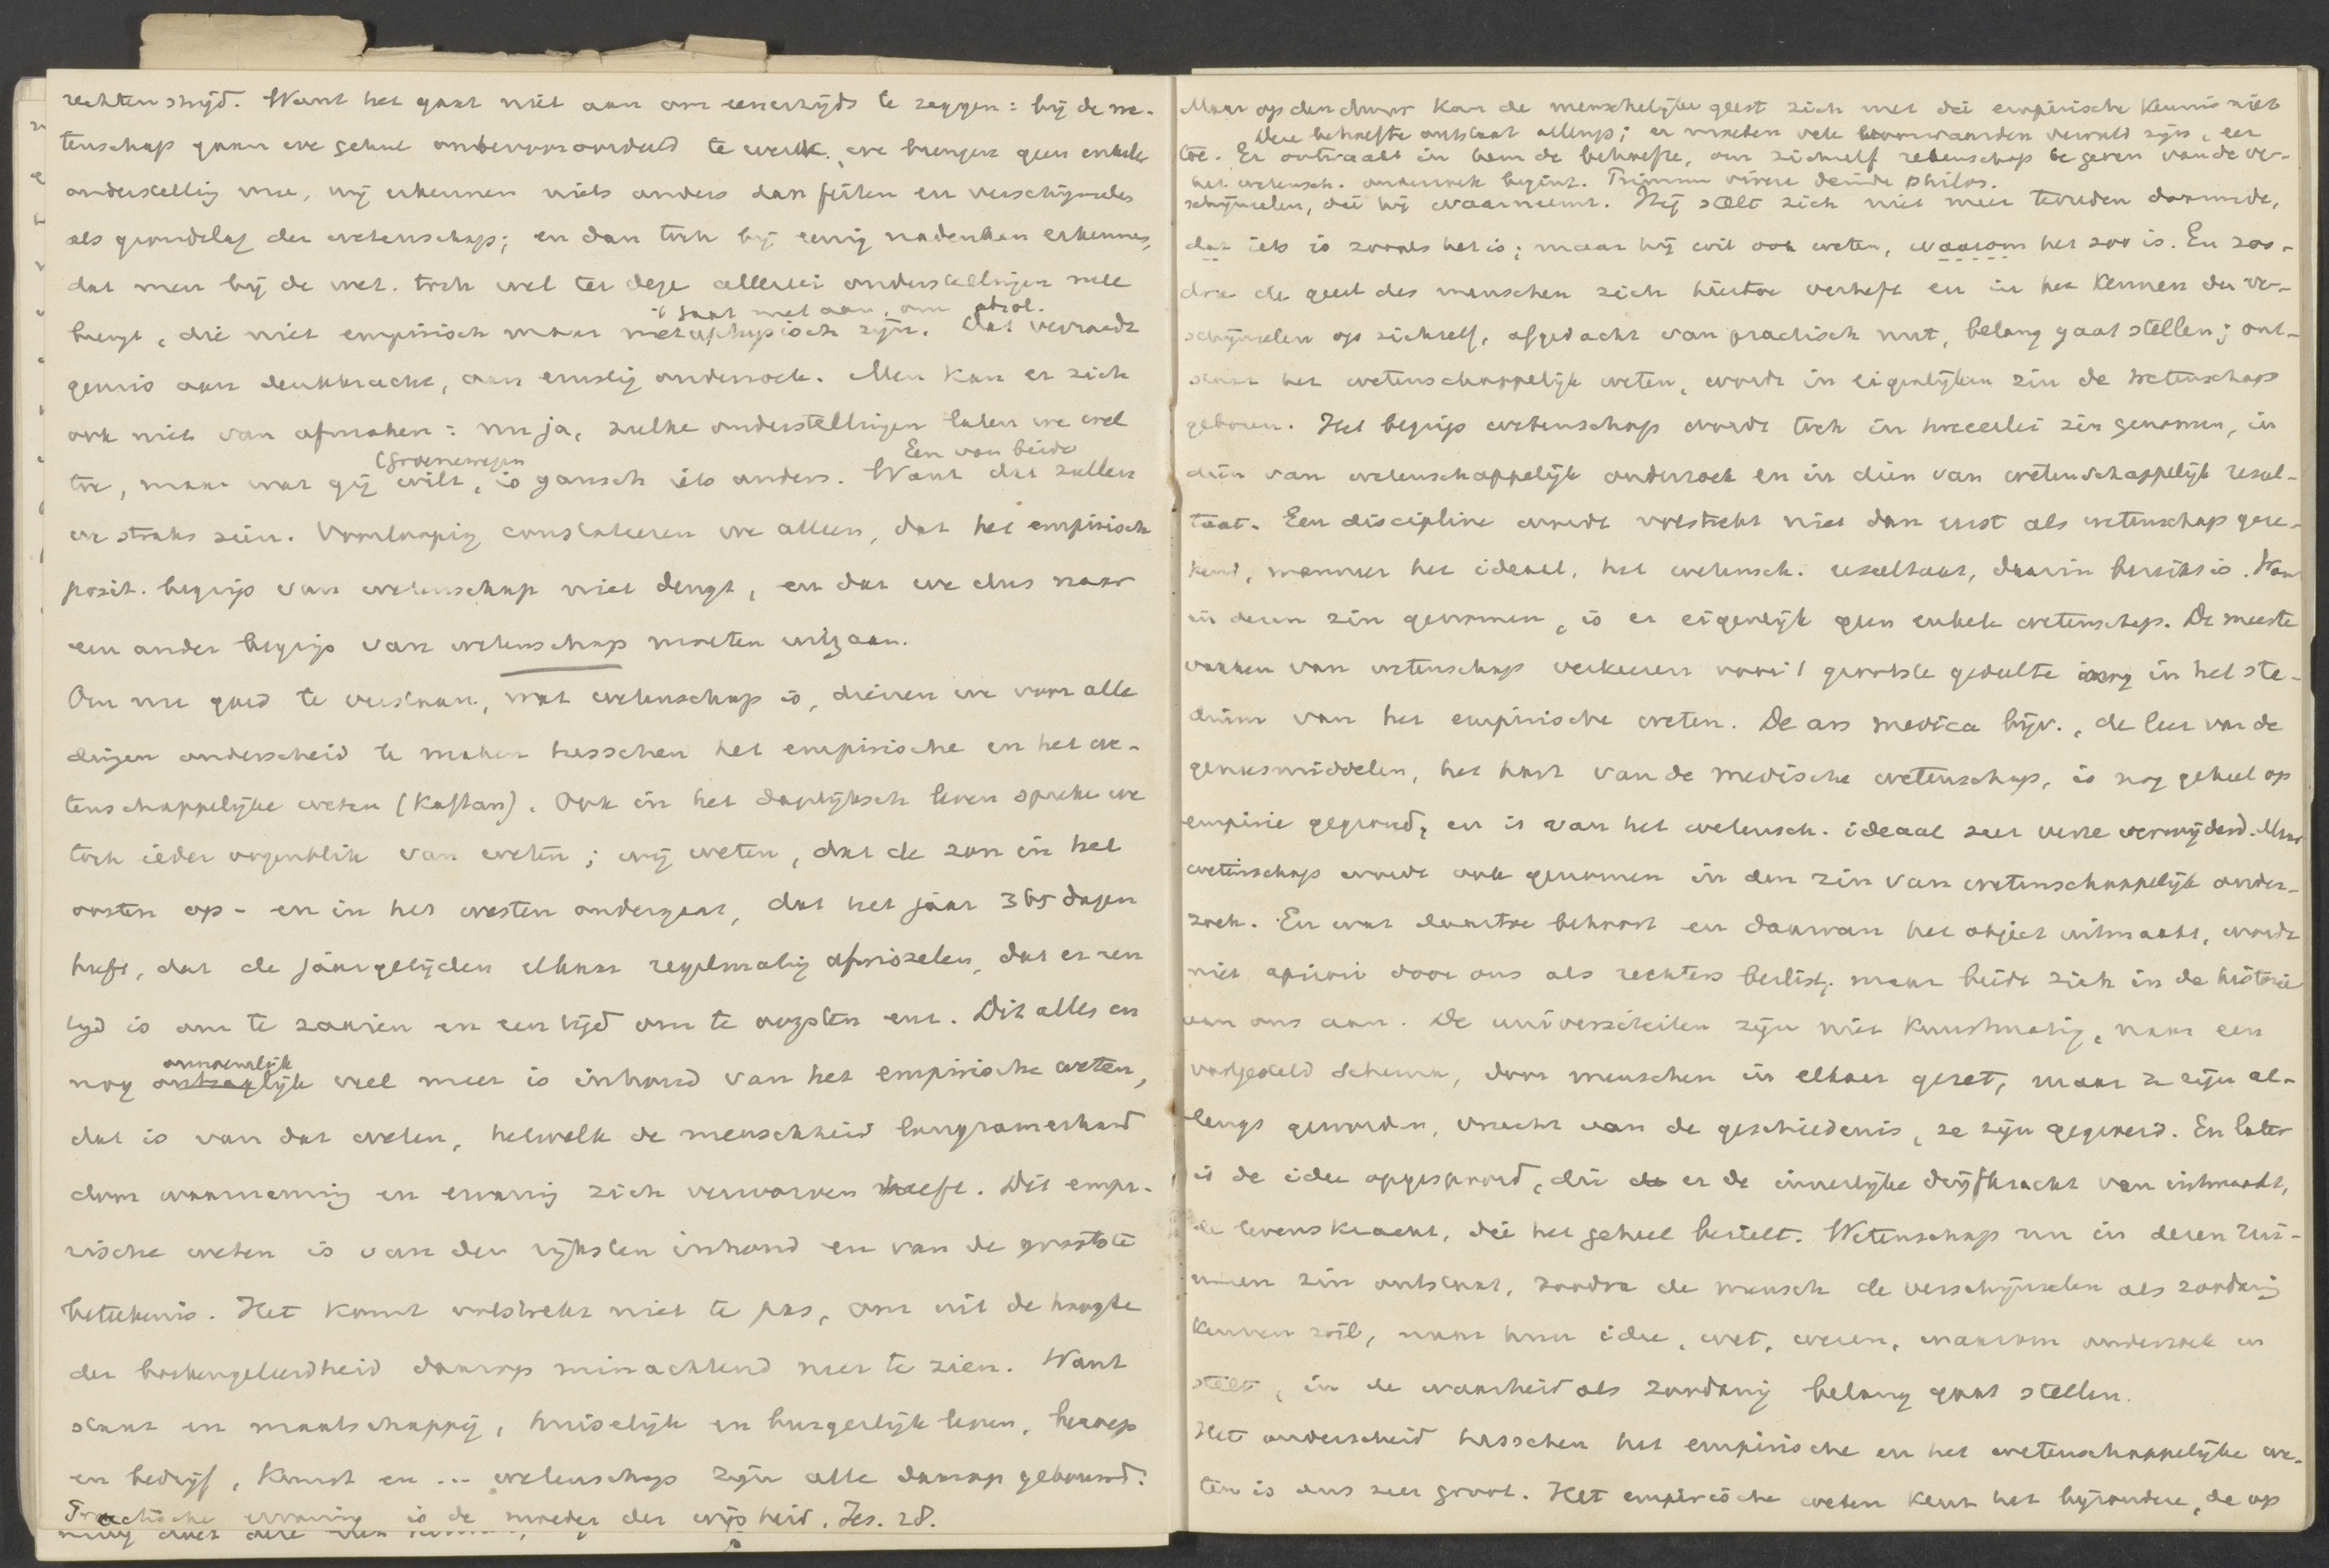 rechten strijd. Want het gaat niet aan om eenerzijds te zeggen: bij de we-
tenschap gaan we geheel onbevooroordeeld te werk, we brengen geen enkele
onderstelling mee, wij erkennen niets anders dan feiten en verschijnselen
als grondslag der wetenschap; en dan toch bij eenig nadenken erkennen,
dat men bij de wet. toch wel ter dege allerlei onderstellingen mee
't gaat niet aan, om absol.
brengt, die niet empirisch maar metaphysisch zijn. Dat verraadt
gemis aan denkkracht, aan ernstig onderzoek. Men kan er zich
ook niet van afmaken: nu ja, zulke onderstellingen laten we wel
(Groenewegen Een van beide
toe, maar wat gij wilt, is gansch iets anders. Want dat zullen
we straks zien. Voorloopig constateeren we alleen, dat het empirisch
posit. begrip van wetenschap niet deugt, en dat we dus naar
een ander begrip van wetenschap moeten uitzaan.
Om nu goed te verstaan, wat wetenschap is, dienen we voor alle
dingen onderscheid te maken tusschen het empirische en het we-
tenschappelijke weten (Kaftan). Ook in het dagelijksch leven spreken we
toch ieder oogenblik van weten; wij weten, dat de zon in het
oosten op- en in het westen ondergaat, dat het jaar 365 dagen
heeft, dat de jaargetijden elkaar regelmatig afwisselen, dat er een
tijd is om te zaaien en een tijd om te oogsten enz. Dit alles en
onnoemlijk
nog ontzaglijk veel meer is inhoud van het empirische weten,
dat is van dat weten, hetwelk de menschheid langzamerhand
door waarneming en ervaring zich verworven heeft. Dit empi-
rische weten is van den rijksten inhoud en van de grootste
beteekenis. Het komt volstrekt niet te pas, om uit de hoogte
der boekengeleerdheid daarop minachtend neer te zien. Want
staat en maatschappij, huiselijk en burgerlijk leven, beroep
en bedrijf, kunst en ... wetenschap zijn alle daarop gebouwd.
Practische ervaring is de moeder der wijsheid. Jes. 28.
Maar op den duur kan de menschelijke geest zich met die empirische kennis niet
Deze behoefte ontstaat allengs; er moeten vele voorwaarden vervuld zijn, eer
toe. Er ontwaakt in hem de behoefte, om zichzelf rekenschap te geven van de ver-
het wetensch. onderzoek begint. Primum vivere deinde philos.
schijnselen, die hij waarneemt. Hij stelt zich niet meer tevreden daarmede,
dat iets is zooals het is; maar hij wil ook weten, waarom het zoo is. En zoo-
dra de geest des menschen zich hiertoe verheft en in het kennen der ver-
schijnselen op zichzelf, afgedacht van practisch nut, belang gaat stellen; ont-
staat het wetenschappelijk weten, wordt in eigenlijken zin de wetenschap
geboren. Het begrip wetenschap wordt toch in tweeerlei zin genomen, in
dien van wetenschappelijk onderzoek en in dien van wetenschappelijk resul-
taat. Een discipline wordt volstrekt niet dan eerst als wetenschap gere-
kend, wanneer het ideaal, het wetensch. resultaat, daarin bereikt is. Want
in dezen zin genomen, is er eigenlijk geen enkele wetenschap. De meeste
vakken van wetenschap verkeeren voor 't grootste gedeelte nog in het sta-
dium van het empirische weten. De ars medica bijv., de leer van de
geneesmiddelen, het hart van de medische wetenschap, is nog geheel op
empirie gegrond, en is van het wetensch. ideaal zeer verre verwijderd. Maar
wetenschap wordt ook genomen in den zin van wetenschappelijk onder-
zoek. En wat daartoe behoort en daarvan het object uitmaakt, wordt
niet apriori door ons als rechters beslist, maar biedt zich in de historie
aan ons aan. De universiteiten zijn niet kunstmatig, naar een
vastgesteld schema, door menschen in elkaer gezet, maar ze zijn al-
lengs geworden, vrucht van de geschiedenis, ze zijn gegroeid. En later
is de idee opgespoord, die er de innerlijke drijfkracht van uitmaakt,
de levenskracht, die het geheel bezielt. Wetenschap nu in dezen rui-
meren zin ontstaat, zoodra de mensch de verschijnselen als zoodanig
kennen wil, naar hun idee, wet, wezen, waarom onderzoek in
stelt, in de waarheid als zoodanig belang gaat stellen.
Het onderscheid tusschen het empirische en het wetenschappelijke we-
ten is dus zeer groot. Het empirische weten kent het bijzondere, de op